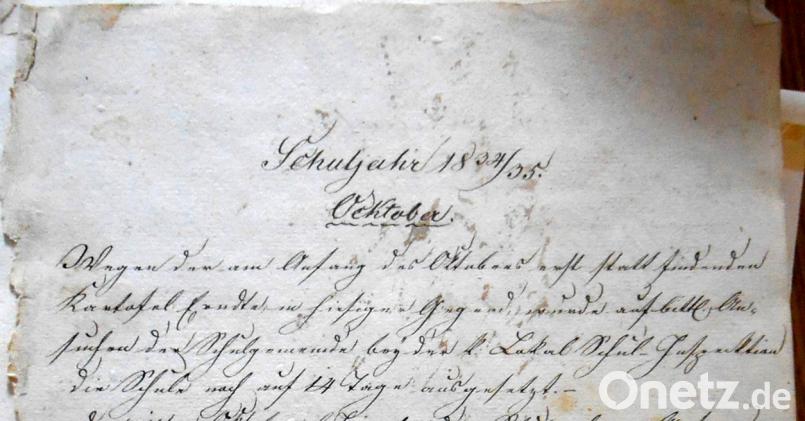 Schuljahr 1834/35.
Ocktober.
Wegen der am Anfang des Oktobers erst statt findenden
Kartofel Erndte in hiesiger Gegend, wurde auf bittl. An-
suchen der Schulgemeinde bey der k. Lokal Schul-Inspektion
die Schule noch auf 14 Tage ausgesetzt.-
Onetz.de